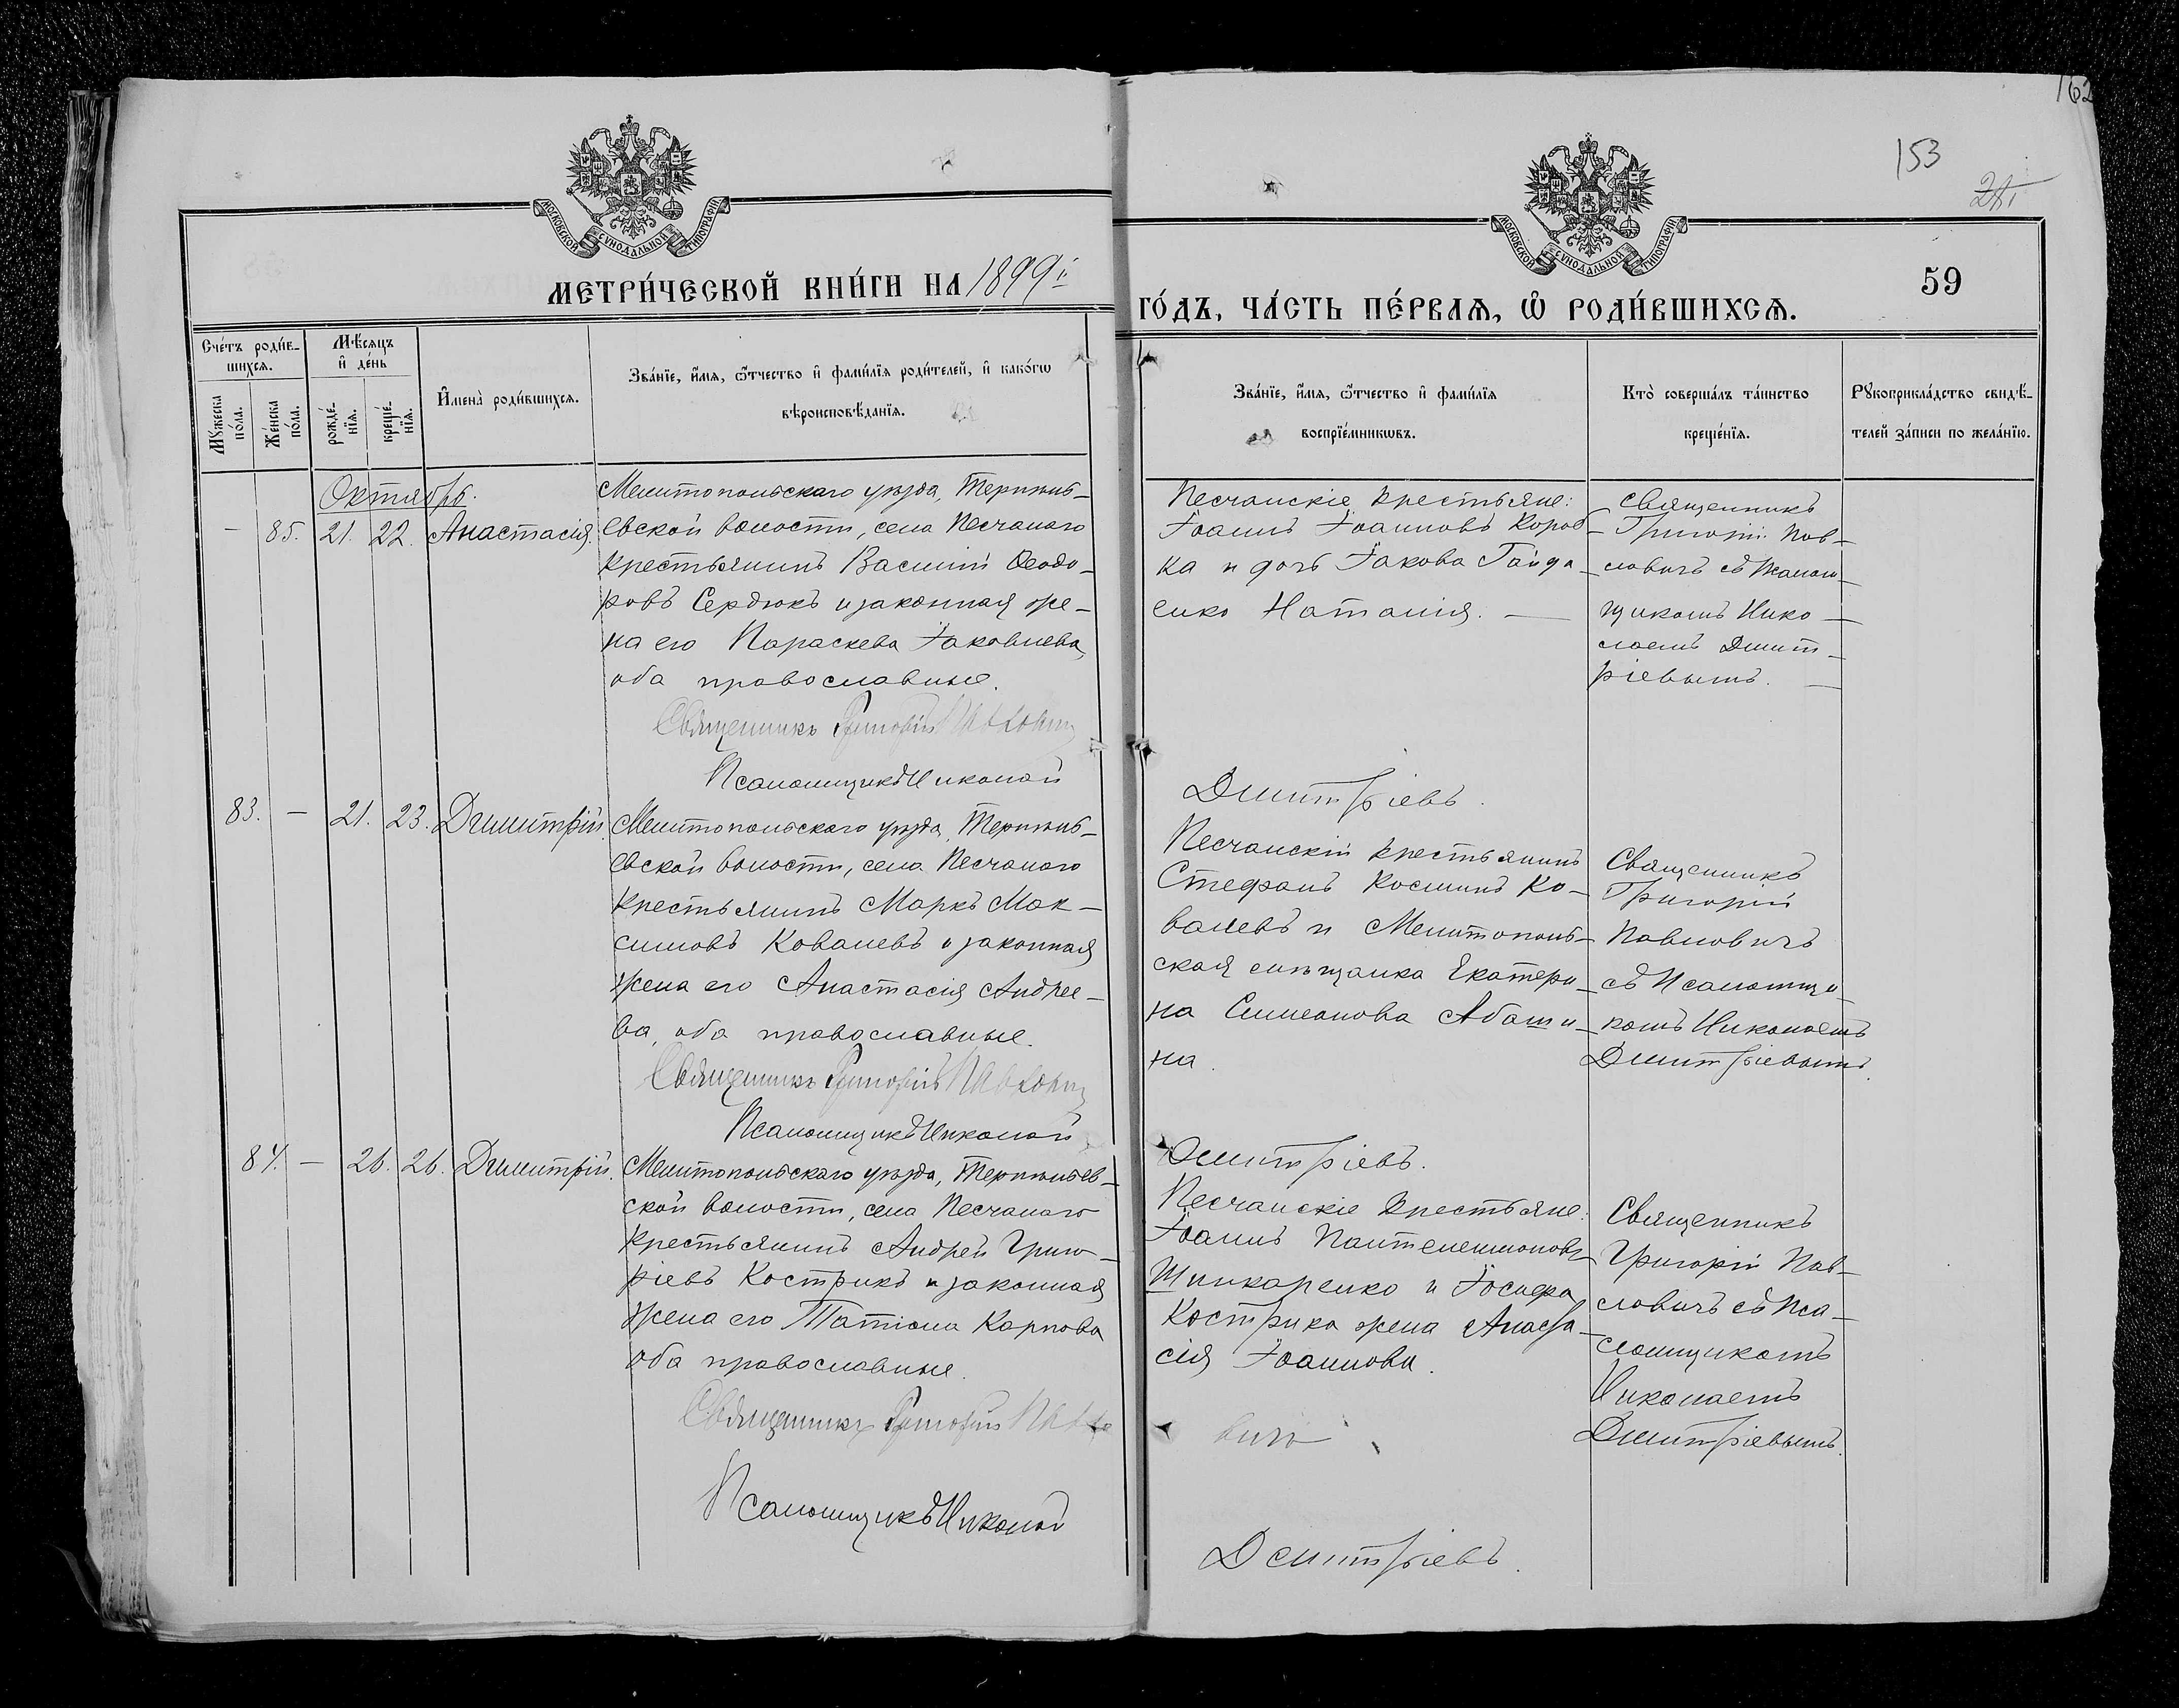 162
153
59
МОСКОВСКОЙ СУНОДАЛЬНОЙ ТИПОГРАФІИ
МОСКОВСКОЙ СУНОДАЛЬНОЙ ТИПОГРАФІИ
МЕТРИ́ЧЕСКОЙ КНИ́ГИ НА 1899й
ГО́ДЪ, ЧА́СТЬ ПЕ́РВАѦ, Ѽ РОДИ́ВШИХСѦ.
Сче́тъ роди́в-
шихся.
Мꙋ́жеска
по́ла.
Же́нска
по́ла.
Мѣ́сяцъ
и҆ де́нь
рожде́-
нїя.
креще́-
нїя.
И҆мена̀ роди́вшихся.
Зва́нїе, и҆́мя, ѻ҆́тчество и҆ фами́лїя роди́телей, и҆ како́гѡ
вѣроисповѣ́данїя.
Зва́нїе, и҆́мя, ѻ҆́тчество и҆ фами́лїя
воспрїе́мникѡвъ.
Кто̀ соверша́лъ та́инство
креще́нїя.
Рꙋкоприкла́дство свидѣ́-
телей за́писи по жела́нїю.
Октябрь.
— 85. 21. 22. Анастасія.
Мелитопольскаго уѣзда, Терпѣнь-
евской волости, села Песчанаго
крестьянинъ Василій Ѳеодо-
ровъ Сердюкъ и законная же-
на его Параскева Іаковлева,
оба православные.
Священникъ Григорій Павлович
Псаломщикъ Николай
Песчанскіе крестьяне:
Іоаннъ Іоанновъ Короб-
ка и дочь Іакова Гайда-
енко Наталія. —
Дмитріевъ.
Священникъ
Григорій Пав-
ловичъ съ Псалом-
щикомъ Нико-
лаемъ Дмит-
ріевымъ. —
83. — 21. 23. Димитрій.
Мелитопольскаго уѣзда, Терпѣнь-
евской волости, села Песчанаго
крестьянинъ Маркъ Мак-
симовъ Ковалевъ и законная
жена его Анастасія Андрее-
ва, оба православные.
Священникъ Григорій Павлович
Псаломщикъ Николай
Песчанскій крестьянинъ
Стефанъ Косминъ Ко-
валевъ и Мелитополь-
ская мѣщанка Екатери-
на Симеонова Абаши-
на.
Дмитріевъ.
Священникъ
Григорій
Павловичъ
съ Псаломщи-
комъ Николаемъ
Дмитріевымъ.
84. — 26. 26. Димитрій.
Мелитопольскаго уѣзда, Терпѣньев-
ской волости, села Песчанаго
крестьянинъ Андрей Григо-
ріевъ Кострикъ и законная
жена его Татіана Карпова
оба православные.
Священникъ Григорій Павло
вичъ
Псаломщикъ Николай
Дмитріевъ.
Песчанскіе крестьяне:
Іоаннъ Пантелеимоновъ
Шинкаренко и Іосифа
Кострика жена Анаста-
сія Іоаннова.
Священникъ
Григорій Пав-
ловичъ съ Пса-
ломщикомъ
Николаемъ
Дмитріевымъ.